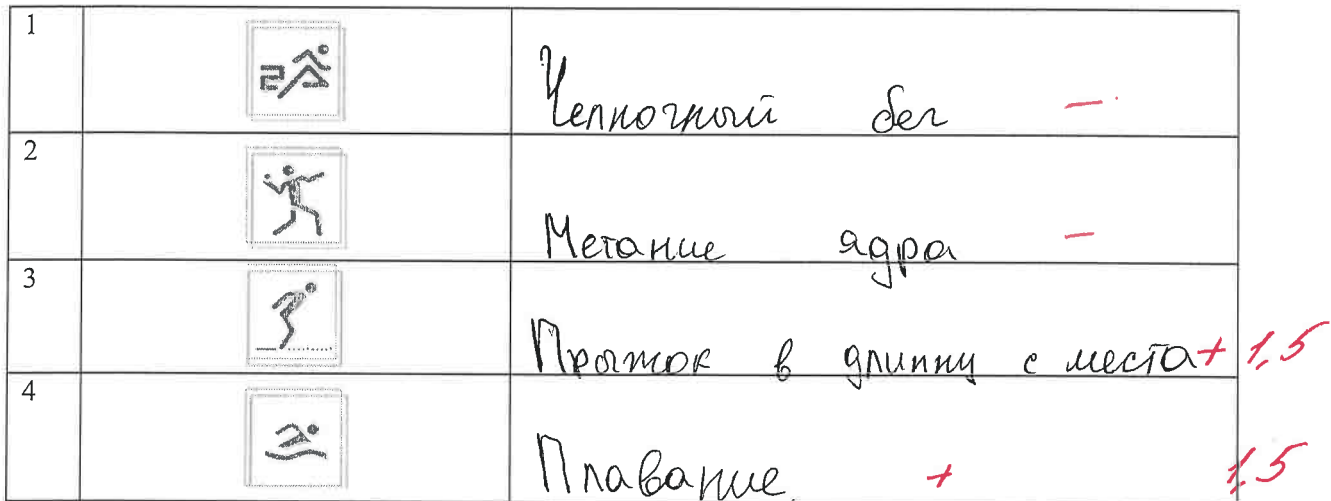 1
Челночный бег –
2
Метание ядра –
3
Прыжок в длинну с места + 1,5
4
Плавание + 1,5